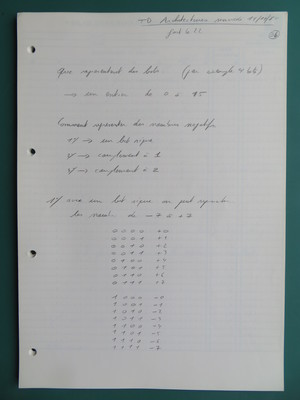 TD Architecture
Que representent des bits (par exemple 4 bits)
→ un entier de 0 à 15
Comment representer des nombres negatifs
1/ → un bit signe
2/ → complement à 1
3/ → complement à 2
1/ avec un bit signe on peut representer
les nombres de -7 à +7
0000 +0
0001 +1
0010 +2
0011 +3
0100 +4
0101 +5
0110 +6
0111 +7
1000 -0
1001 -1
1010 -2
1011 -3
1100 -4
1101 -5
1110 -6
1111 -7